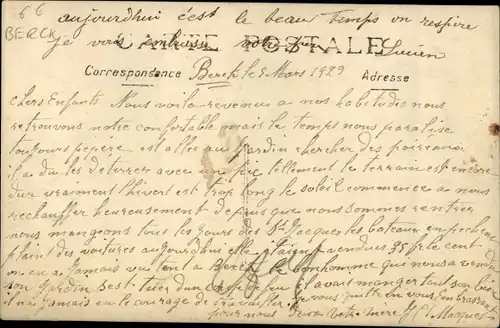 66
BERCK
aujourdhui c'est le beau temps on respire
je vous embrasse votre père Lucien
CARTE POSTALE
Correspondance Adresse
Berck le 5 Mars 1929
chers Enfants Nous voila revenue a nos habitudes nous
retrouvons notre confortable mais le temps nous paralise
toujours pepere est alles au Jardin chercher des poireaux
il a du les deterrer avec une pic tellement le terrain est encore
dur vraiment l'hivert est trop long le soleil commence a nous
rechauffer heureusement depuis que nous sommes rentrer
nous mangeons tous les jours des St Jacques les bateaux en pechent
plaint des voitures aujourdhui elle etaient vendues 35 fr le cent
on en a jamais vu tent a Berck le bonhomme qui nous a vendu
son Jardin s'est tuer d'un coup de feu avant manger tout son bien
il n'a jamais eu le courage de travailler je vous quitte en vous embrassant
pour nous deux votre mère Macquet